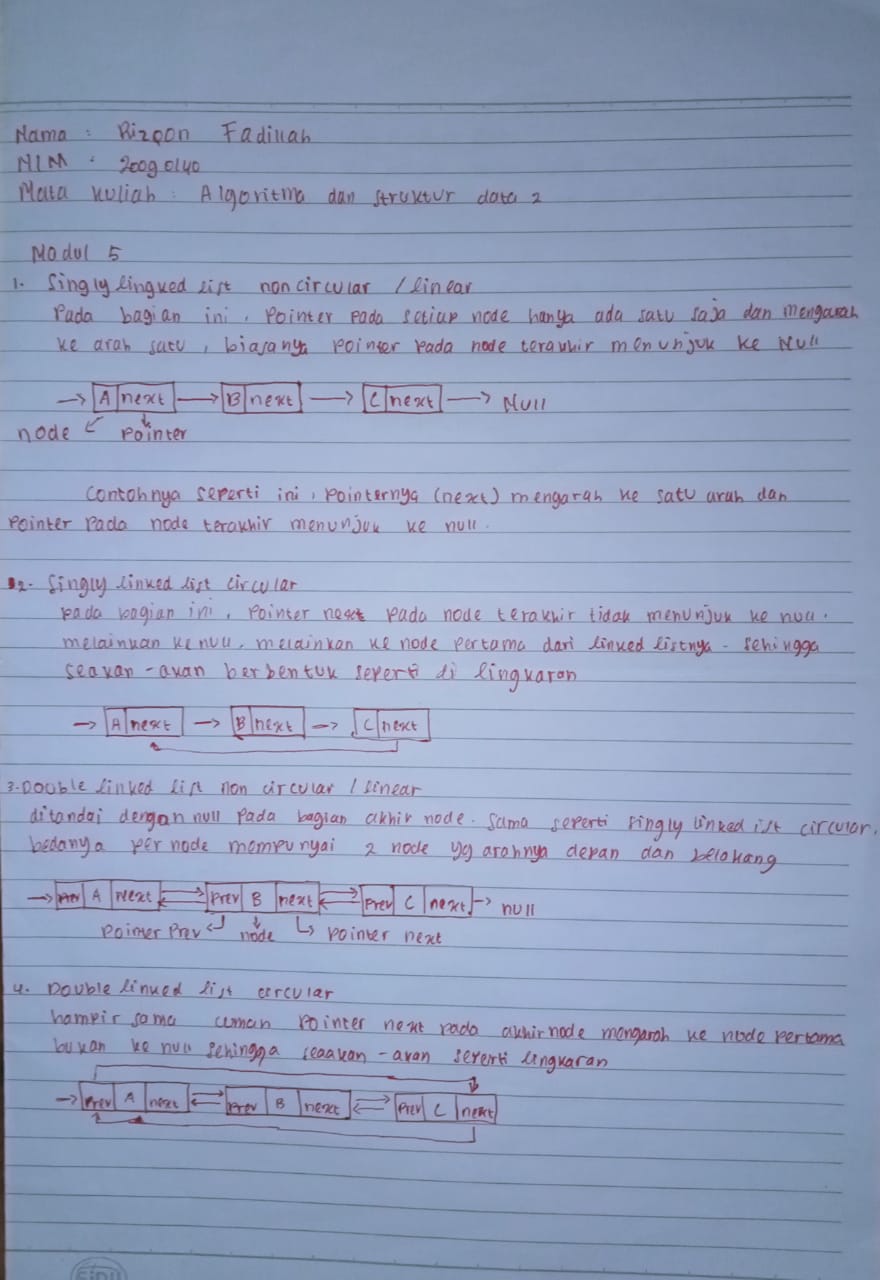 Nama : Rizqon Fadillah
NIM : 20090140
Mata kuliah : Algoritma dan struktur data 2
Modul 5
1. Singly lingked list non circular / linear
Pada bagian ini, pointer pada setiap node hanya ada satu saja dan mengarah
ke arah satu, biasanya pointer pada node terakhir menunjuk ke Null
A next B next C next Null
node pointer
Contohnya seperti ini, pointernya (next) mengarah ke satu arah dan
pointer pada node terakhir menunjuk ke null.
2. Singly linked list circular
pada bagian ini, pointer next pada node terakhir tidak menunjuk ke null.
melainkan ke null, melainkan ke node pertama dari linked listnya. sehingga
seakan-akan berbentuk seperti di lingkaran
A next B next C next
3. Double linked list non circular / linear
ditandai dengan null pada bagian akhir node. sama seperti singly linked ist circular,
bedanya per node mempunyai 2 node yg arahnya depan dan belakang
Prev A next Prev B next Prev C next null
pointer Prev node pointer next
4. Double linked list circular
hampir sama cuman pointer next pada akhir node mengarah ke node pertama
bukan ke null sehingga seaakan-akan seperti lingkaran
Prev A next Prev B next Prev C next